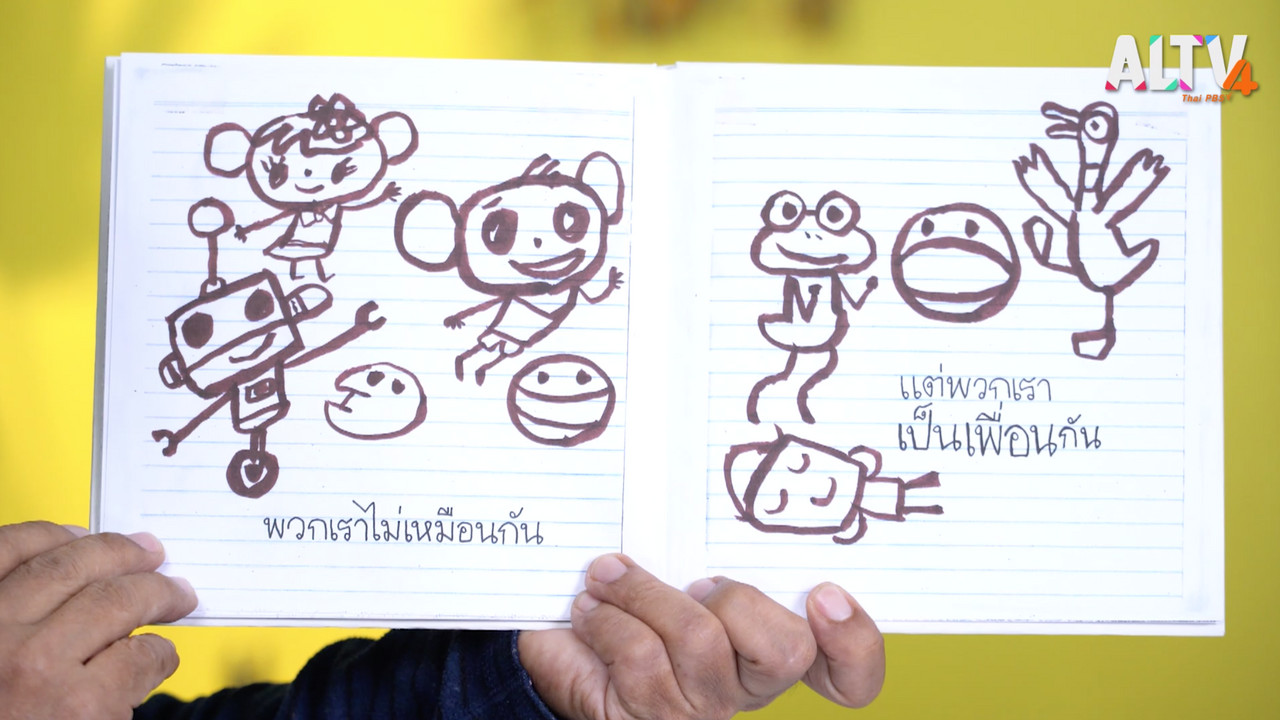 ALTV4
Thai PBS
พวกเราไม่เหมือนกัน
แต่พวกเรา
เป็นเพื่อนกัน